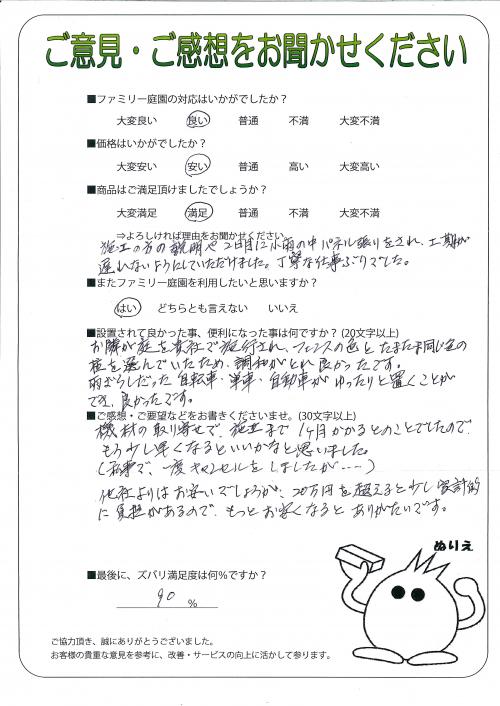 ご意見・ご感想をお聞かせください
■ファミリー庭園の対応はいかがでしたか？
大変良い 良い 普通 不満 大変不満
■価格はいかがでしたか？
大変安い 安い 普通 高い 大変高い
■商品はご満足頂けましたでしょうか？
大変満足 満足 普通 不満 大変不満
⇒よろしければ理由をお聞かせください
施工の方の説明や2日目に小雨の中パネル張りをされ、工期が
遅れないようにしていただけました。丁寧な仕事ぶりでした。
■またファミリー庭園を利用したいと思いますか？
はい どちらとも言えない いいえ
■設置されて良かった事、便利になった事は何ですか？(20文字以上)
お隣が庭を貴社で施行され、フェンスの色とたまたま同じ色の
柱を選んでいたため、調和がとれ良かったです。
雨ざらしだった自転車・単車・自動車がゆったりと置くことが
でき、良かったです。
■ご感想・ご要望などをお書きくださいませ。(30文字以上)
機材の取り寄せで、施工まで1ヶ月かかるとのことでしたので、
もう少し早くなるといいかなと思いました。
(私事で、一度キャンセルをしましたが……)
他社よりはお安いでしょうが、20万円を超えると少し家計的
に負担があるので、もっとお安くなるとありがたいです。
ぬりえ
■最後に、ズバリ満足度は何％ですか？
90 %
ご協力頂き、誠にありがとうございました。
お客様の貴重な意見を参考に、改善・サービスの向上に活かして参ります。